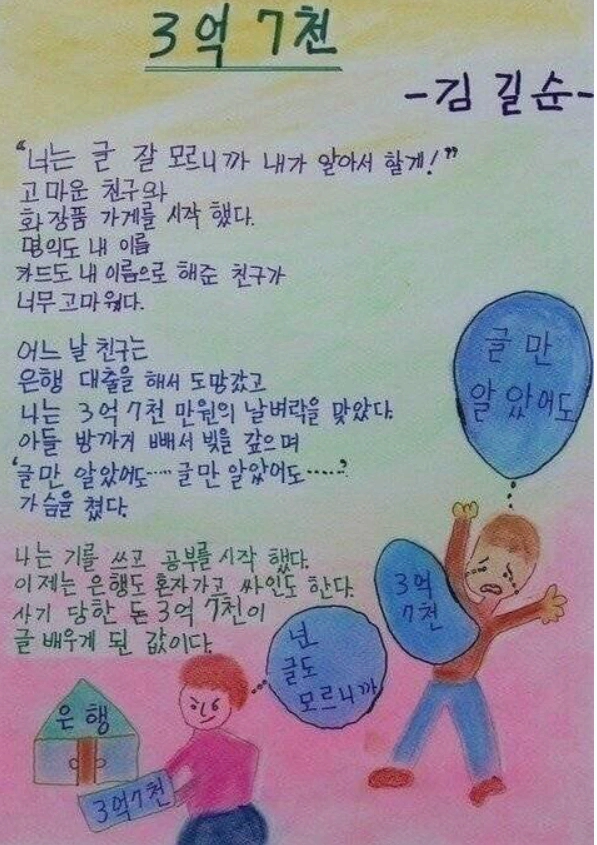 3억 7천
-김길순-
"너는 글 잘 모르니까 내가 알아서 할게!"
고마운 친구와
화장품 가게를 시작 했다.
명의도 내 이름
카드도 내 이름으로 해준 친구가
너무 고마웠다.
어느 날 친구는
은행 대출을 해서 도망갔고
나는 3억 7천 만원의 날벼락을 맞았다.
아들 방까지 빼서 빚을 갚으며
'글만 알았어도····· 글만 알았어도·····'
가슴을 쳤다.
나는 기를 쓰고 공부를 시작 했다.
이제는 은행도 혼자가고 싸인도 한다.
사기 당한 돈 3억 7천이
글 배우게 된 값이다.
글만
알았어도
3억
7천
넌
글도
모르니까
은행
3억7천